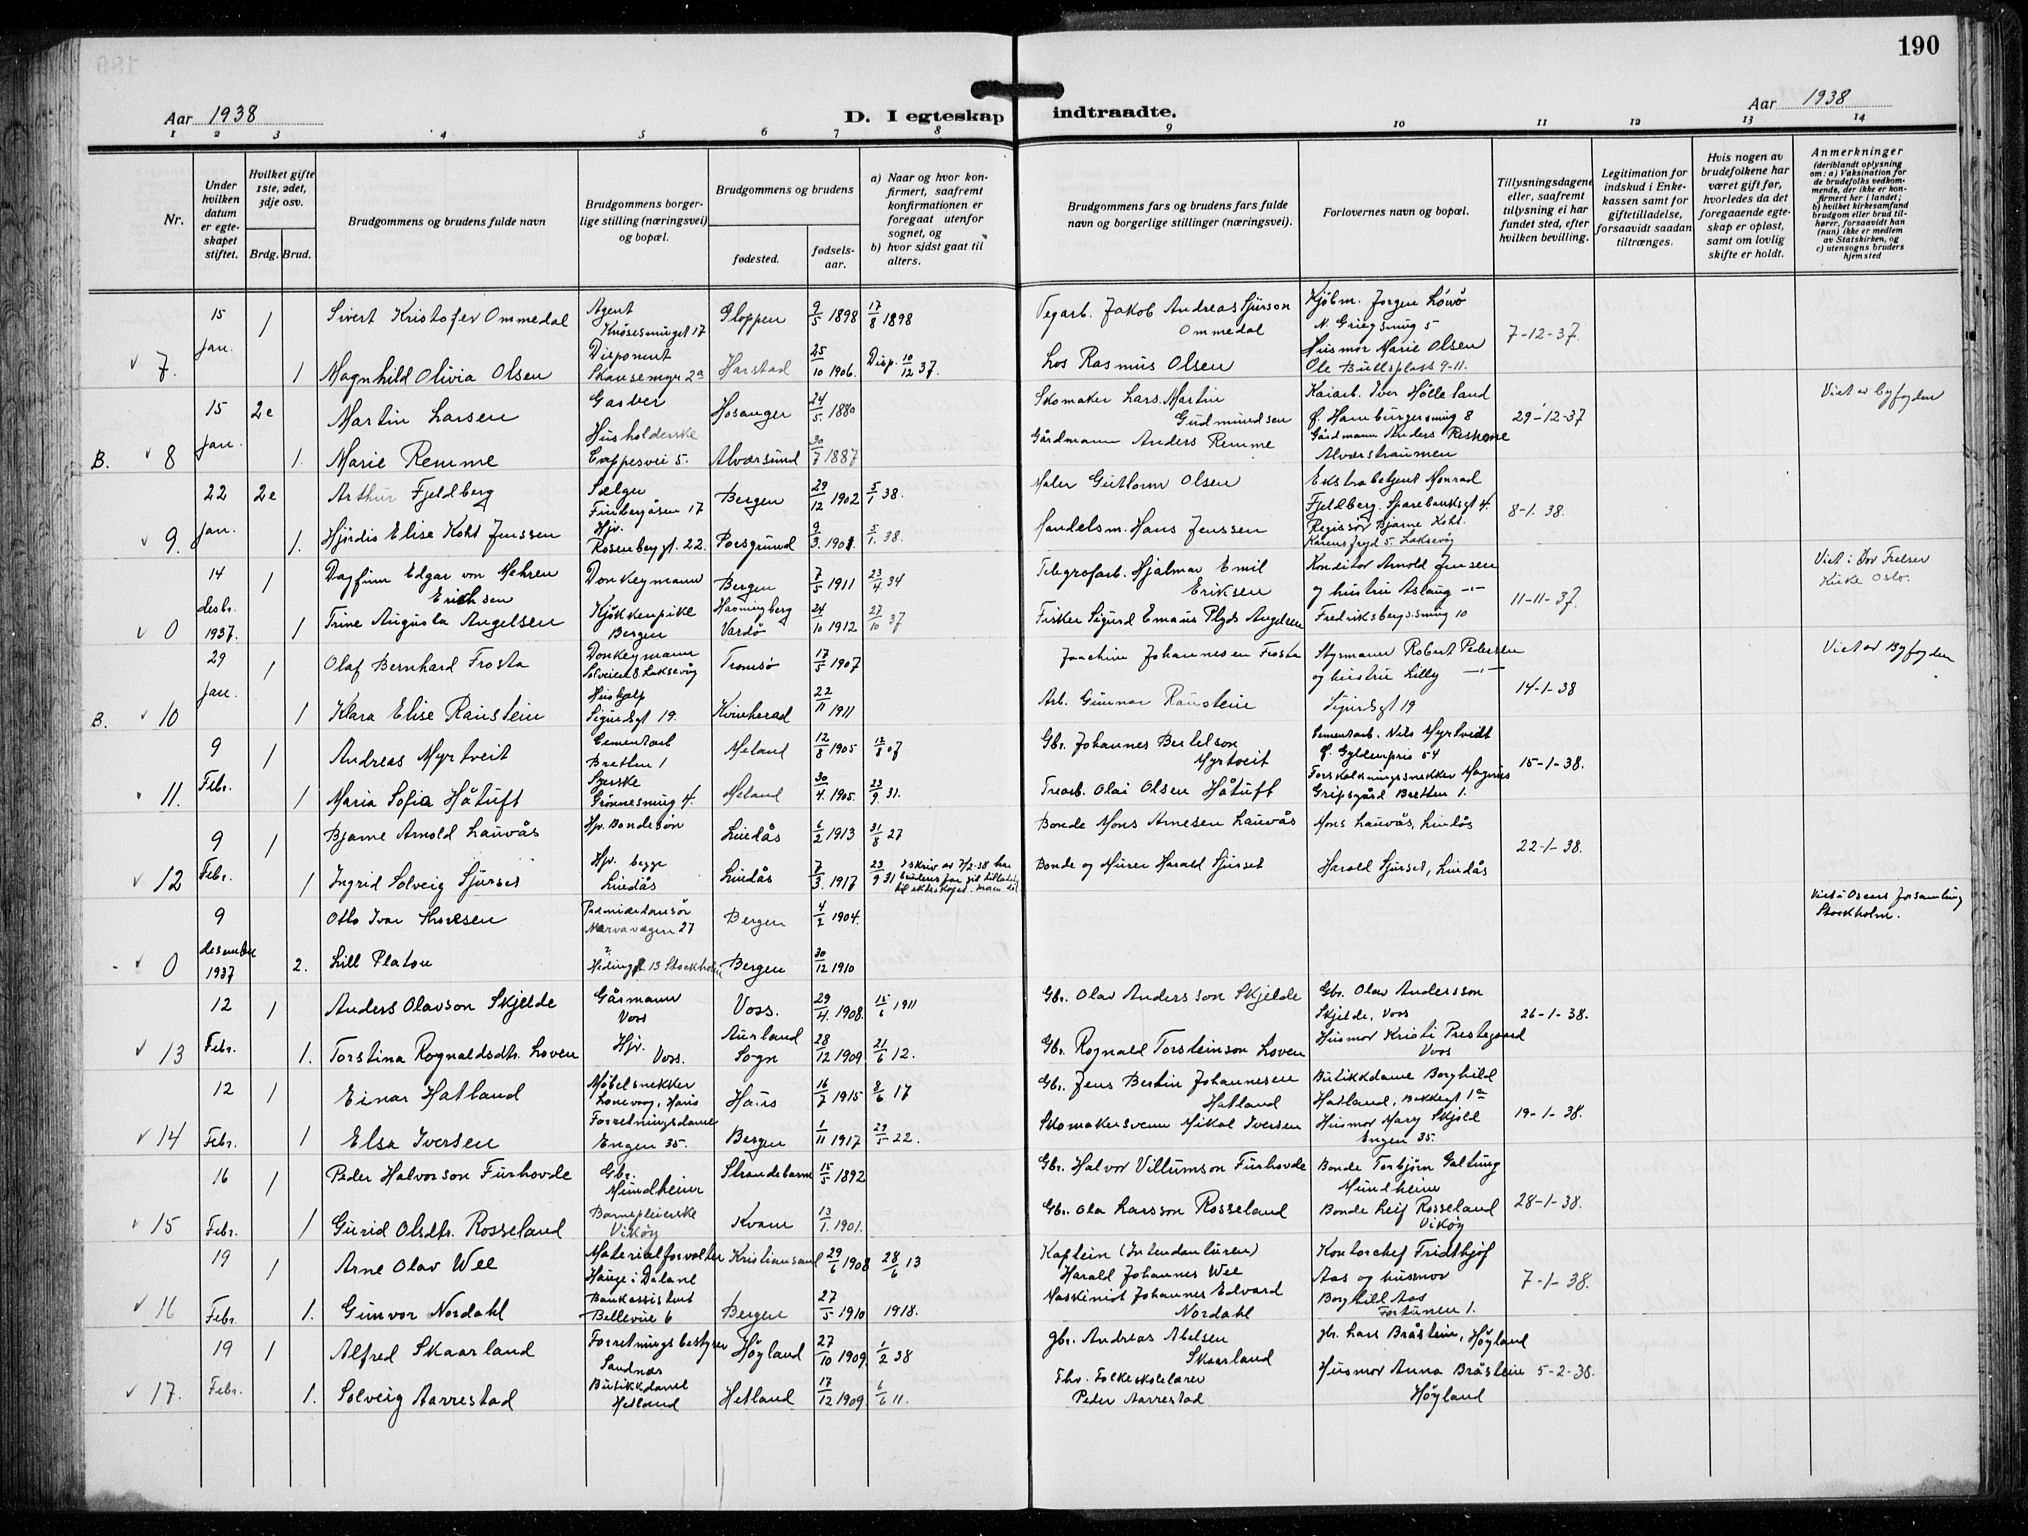 190
Aar 1938
D. I egteskap indtraadte.
Aar 1938
1 2 3 4 5 6 7 8 9 10 11 12 13 14
Nr.
Under hvilken datum er egteskapet stiftet.
Hvilket gifte 1ste, 2det, 3dje osv.
Brdg. Brud.
Brudgommens og brudens fulde navn
Brudgommens borgerlige stilling (næringsvei) og bopæl.
Brudgommens og brudens
fødested.
fødselsaar.
a) Naar og hvor konfirmert, saafremt konfirmationen er foregaat utenfor sognet, og
b) hvor sidst gaat til alters.
Brudgommens fars og brudens fars fulde navn og borgerlige stillinger (næringsvei).
Forlovernes navn og bopæl.
Tillysningsdagene eller, saafremt tillysning ei har fundet sted, efter hvilken bevilling.
Legitimation for indskud i Enkekassen samt for giftetilladelse, forsaavidt saadan tiltrænges.
Hvis nogen av brudefolkene har været gift før, hvorledes da det foregaaende egteskap er opløst, samt om lovlig skifte er holdt.
Anmerkninger (deriblandt oplysning om: a) Vaksination for de brudefolks vedkommende, der ikke er konfirmert her i landet; b) hvilket kirkesamfund brudgom eller brud tilhører, forsaavidt han (hun) ikke er medlem av Statskirken, og c) utensogns bruders hjemsted
15 1 Sivert Kristofer Ommedal Agent Knøsesmuget 17 Gloppen 9/5 1898 17/8 1898 Vegarb. Jakob Andreas Sjurson Ommedal Kjøbm. Jørgen Løvø N. Griegsmug 5 7-12-37.
7. Jan. 1 Magnhild Olivia Olsen Disponent Skansemyr 2a Harstad 25/10 1906. Disp. 10/12 37. Los Rasmus Olsen Husmor Marie Olsen Ole Bullsplass 9-11.
15 2e Martin Larsen Gasver Hosanger 24/5 1880 Skomaker Lars. Martin Gudmundsen Kaiarb. Iver Helleland Hamburgersmug 8 29-12-37 Viet av byfogden
B. 8 Jan. 1. Marie Remme Husholderske Cappesvei 5. Alversund 30/7 1887 Gårdmann Anders Remme Gårdmann Anders Alverstraumen
22 2e Arthur Fjeldberg Sælger Finbergåsen 17 Bergen 29/12 1902 5/1 38. Maler Guttorm Olsen Ekstrabetjent Monrad Fjeldberg. Sparebanksgt 4. 8-1. 38.
9. Jan. 1. Hjørdis Elise Koht Jenssen Hjv. Rosenbergt. 22. Porsgrund 9/3. 1901. 5/1. 38. Handelsm. Hans Jenssen Regissør Bjarne Koht. 5. Laksevåg
14 1 Dagfinn Edgar von Mehren Erichsen Donkeymann Bergen 7/5 1911 23/4 34 Telegrafarb. Hjalmar Emil Eriksen Konditor Arnold Jensen og hustru Aslaug -"- 11-11-37. Viet i Vor Frelser Kirke Oslo.
0 desbr. 1937. 1 Trine Augusta Angelsen Kjøkkenpike Bergen Havningberg Vardø 24/10 1912 27/10 37 Fisker Sigurd Emaus Plyds Angelsen Fredriksbergssmug 10
29 1 Olaf Bernhard Frosta Donkeymann Solveien 8. Laksevåg Tromsø 17/5 1907 Joachim Johannesen Frosta Styrmann Robert Pedersen og hustru Lilly -"- 14-1-38 Viet av Byfogden
B. 10 Jan. 1 Klara Elise Raustein Hushjelp Sigurdsgt 19. Kvinherad 22/11 1911 Arb. Gunnar Raustein Sigurdsgt 19
9 1 Andreas Myrtveit Cementarb Bretten 1 Meland 12/8 1905 12/8 07 Gbr. Johannes Bertelson Myrtveit Sementarb. Nils Myrtvedt Gyldenpris 54 15-1-38.
11. Febr. 1 Maria Sofia Håtuft Syerske Grønnesmug 4. Meland 30/4. 1905. 23/9 31. Trearb. Olai Olsen Håtuft Forskalkningssnekker Magnus Gripsgård Bretten 1.
9 1 Bjarne Arnold Lauvås Hjv. Bondesøn Lindås 6/2 1913 31/8 27 Bonde Mons Arnesen Lauvås Mons Lauvås, Lindås 22-1-38.
12 Febr. 1 Ingrid Solveig Sjurset Hjv. begge Lindås Lindås 7/3. 1917 23/9 31 I skriv av 7/2-38 har brudens far git tilladelse til ekteskapet. Bonde og Murer Harald Sjurset Harald Sjurset, Lindås
9 Otto Ivar Thoresen Premierdansør Narvavägen 27 Bergen 4/2 1904. Viet i Oscars forsamling Stockholm.
0 desember 1937 2. Lill Platou 13 Stockholm Bergen 30/12 1910
12 1 Anders Olavson Skjelde Gårmann Voss Voss. 29/4. 1908. 15/6 1911 Gbr. Olav Andersson Skjelde Gbr. Olav Andersson Skjelde, Voss 26-1-38.
13 Febr. 1. Torstina Rognaldsdtr. Loven Hjv. Voss. Aurland Sogn 28/12 1909 21/6 12. Gbr. Rognald Torsteinson Loven Husmor Kristi Prestegaard Voss
12 1 Einar Hatland Møbelsnekker Lonevaag, Haus Haus 16/7 1915 8/6 17 Gbr. Jens Bertin Johannesen Hatland Butikkdame Borghild Hatland, Bakkegt 1a 19-1-38.
14 Febr. 1 Elsa Iversen Forretningsdame Engen 35. Bergen 1/11 1917 29/5 22. Skomakersvenn Mikal Iversen Husmor Mary Skjold Engen 35.
16 1 Peder Halvorson Furhovde Gbr. Mundheim Strandebarm 15/5 1892 Gbr. Halvor Villumson Furhovde Bonde Torbjørn Galtung Mundheim 28-1-38.
15 Febr. 1 Gurid Olsdtr. Rosseland Barnepleierske Vikøy Kvam 13/1. 1901. Gbr. Ola Larsson Rosseland Bonde Leif Rosseland Vikøy
19 1 Arne Olav Wee Materialforvalter Hauge i Dalane Kristiansand 29/6 1908 28/6 13 Kaptein (Intendanturen) Harald Johannes Wee Kontorchef Fridthjof Aas og husmor 7-1-38.
16 Febr. 1. Gunvor Nordahl Bankassistent Bellevue 6 Bergen 27/5 1910 1918. Maskinist Johannes Edvard Nordahl Borghild Aas Fortunen 1.
19 1 Alfred Skaarland Forretningsbestyrer Sandnes Høyland 27/10 1909. 1/2 38 gbr. Andreas Abelsen Skaarland gbr. Lars Bråstein, Høyland 5-2-38.
17. Febr. 1. Solveig Aarrestad Butikkdame Hetland Hetland 17/12 1909. 6/6 11. Fhv. Folkeskolelærer Peder Aarrestad Husmor Anna Bråstein Høyland